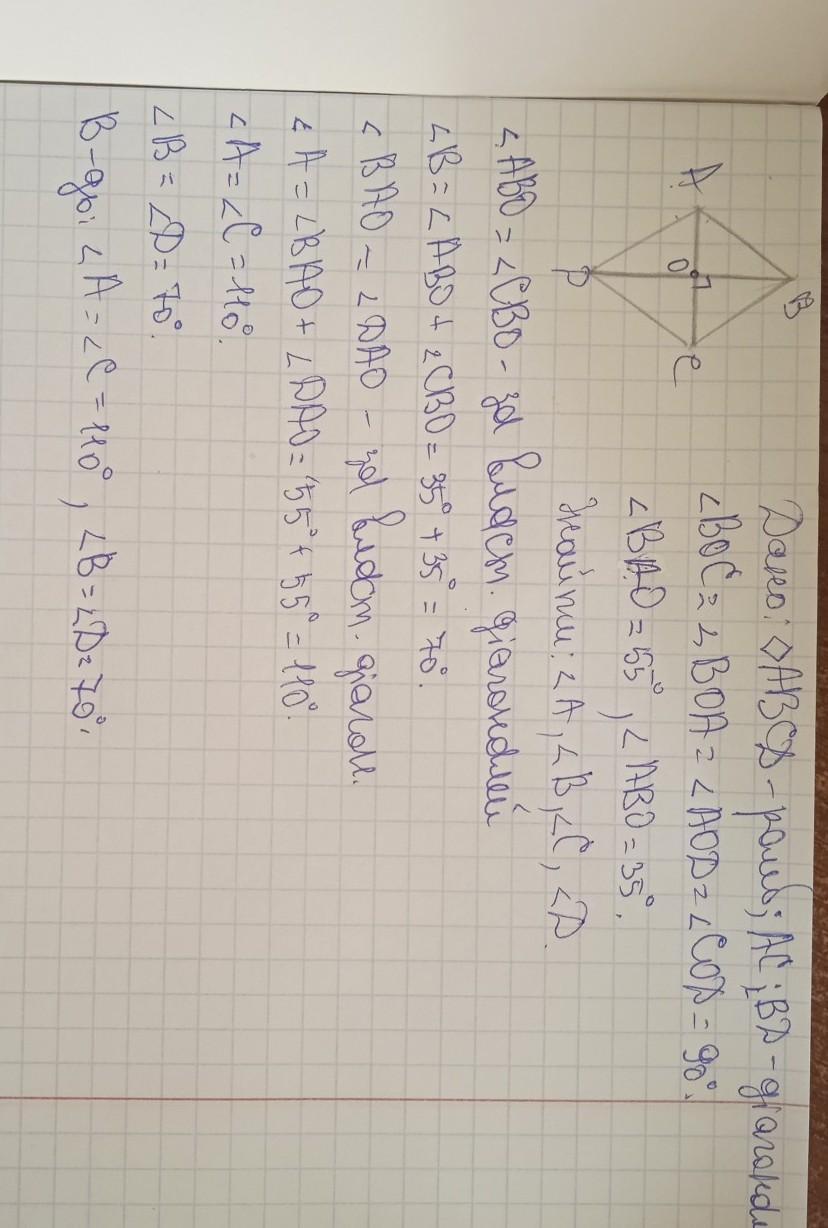 A
B
O
C
D
Дано: ◇ABCD - ромб; AC і BD - діагонал
∠BOC = ∠BOA = ∠AOD = ∠COD = 90°.
∠BAO = 55°, ∠ABO = 35°.
Знайти: ∠A, ∠B, ∠C, ∠D.
∠ABO = ∠CBO - за власт. діагоналей
∠B = ∠ABO + ∠CBO = 35° + 35° = 70°.
∠BAO = ∠DAO - за власт. діагон.
∠A = ∠BAO + ∠DAO = 55° + 55° = 110°.
∠A = ∠C = 110°.
∠B = ∠D = 70°.
В-дь: ∠A = ∠C = 110°, ∠B = ∠D = 70°.